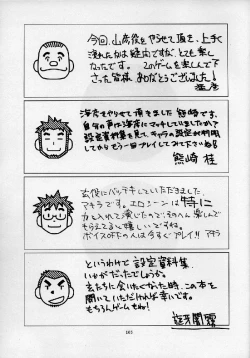 今回、山彦役をやらせて頂き、上手く
演れたかは疑問ですが、とても楽し
かったです。このゲームを楽しんで下
さった皆様、ありがとうございました!
海彦をやらせて頂きました熊崎です。
自分の声は海彦にマッチしていましたか?
設定資料集を見て、キャラの設定
してからもう一回プレイしてみて下さいね!
熊崎 桂
アキラです。エロシーンは特に
力を入れて演じたので、そのへん楽しんで
もらえると嬉しいですね。
ボイスOFFの人は今すぐプレイ!! アキラ
というわけで設定資料集
いかがだったでしょうか。
玄たちに会いたくなった時、この本を
開いていただければ幸いです。
もちろんゲームもね!
165